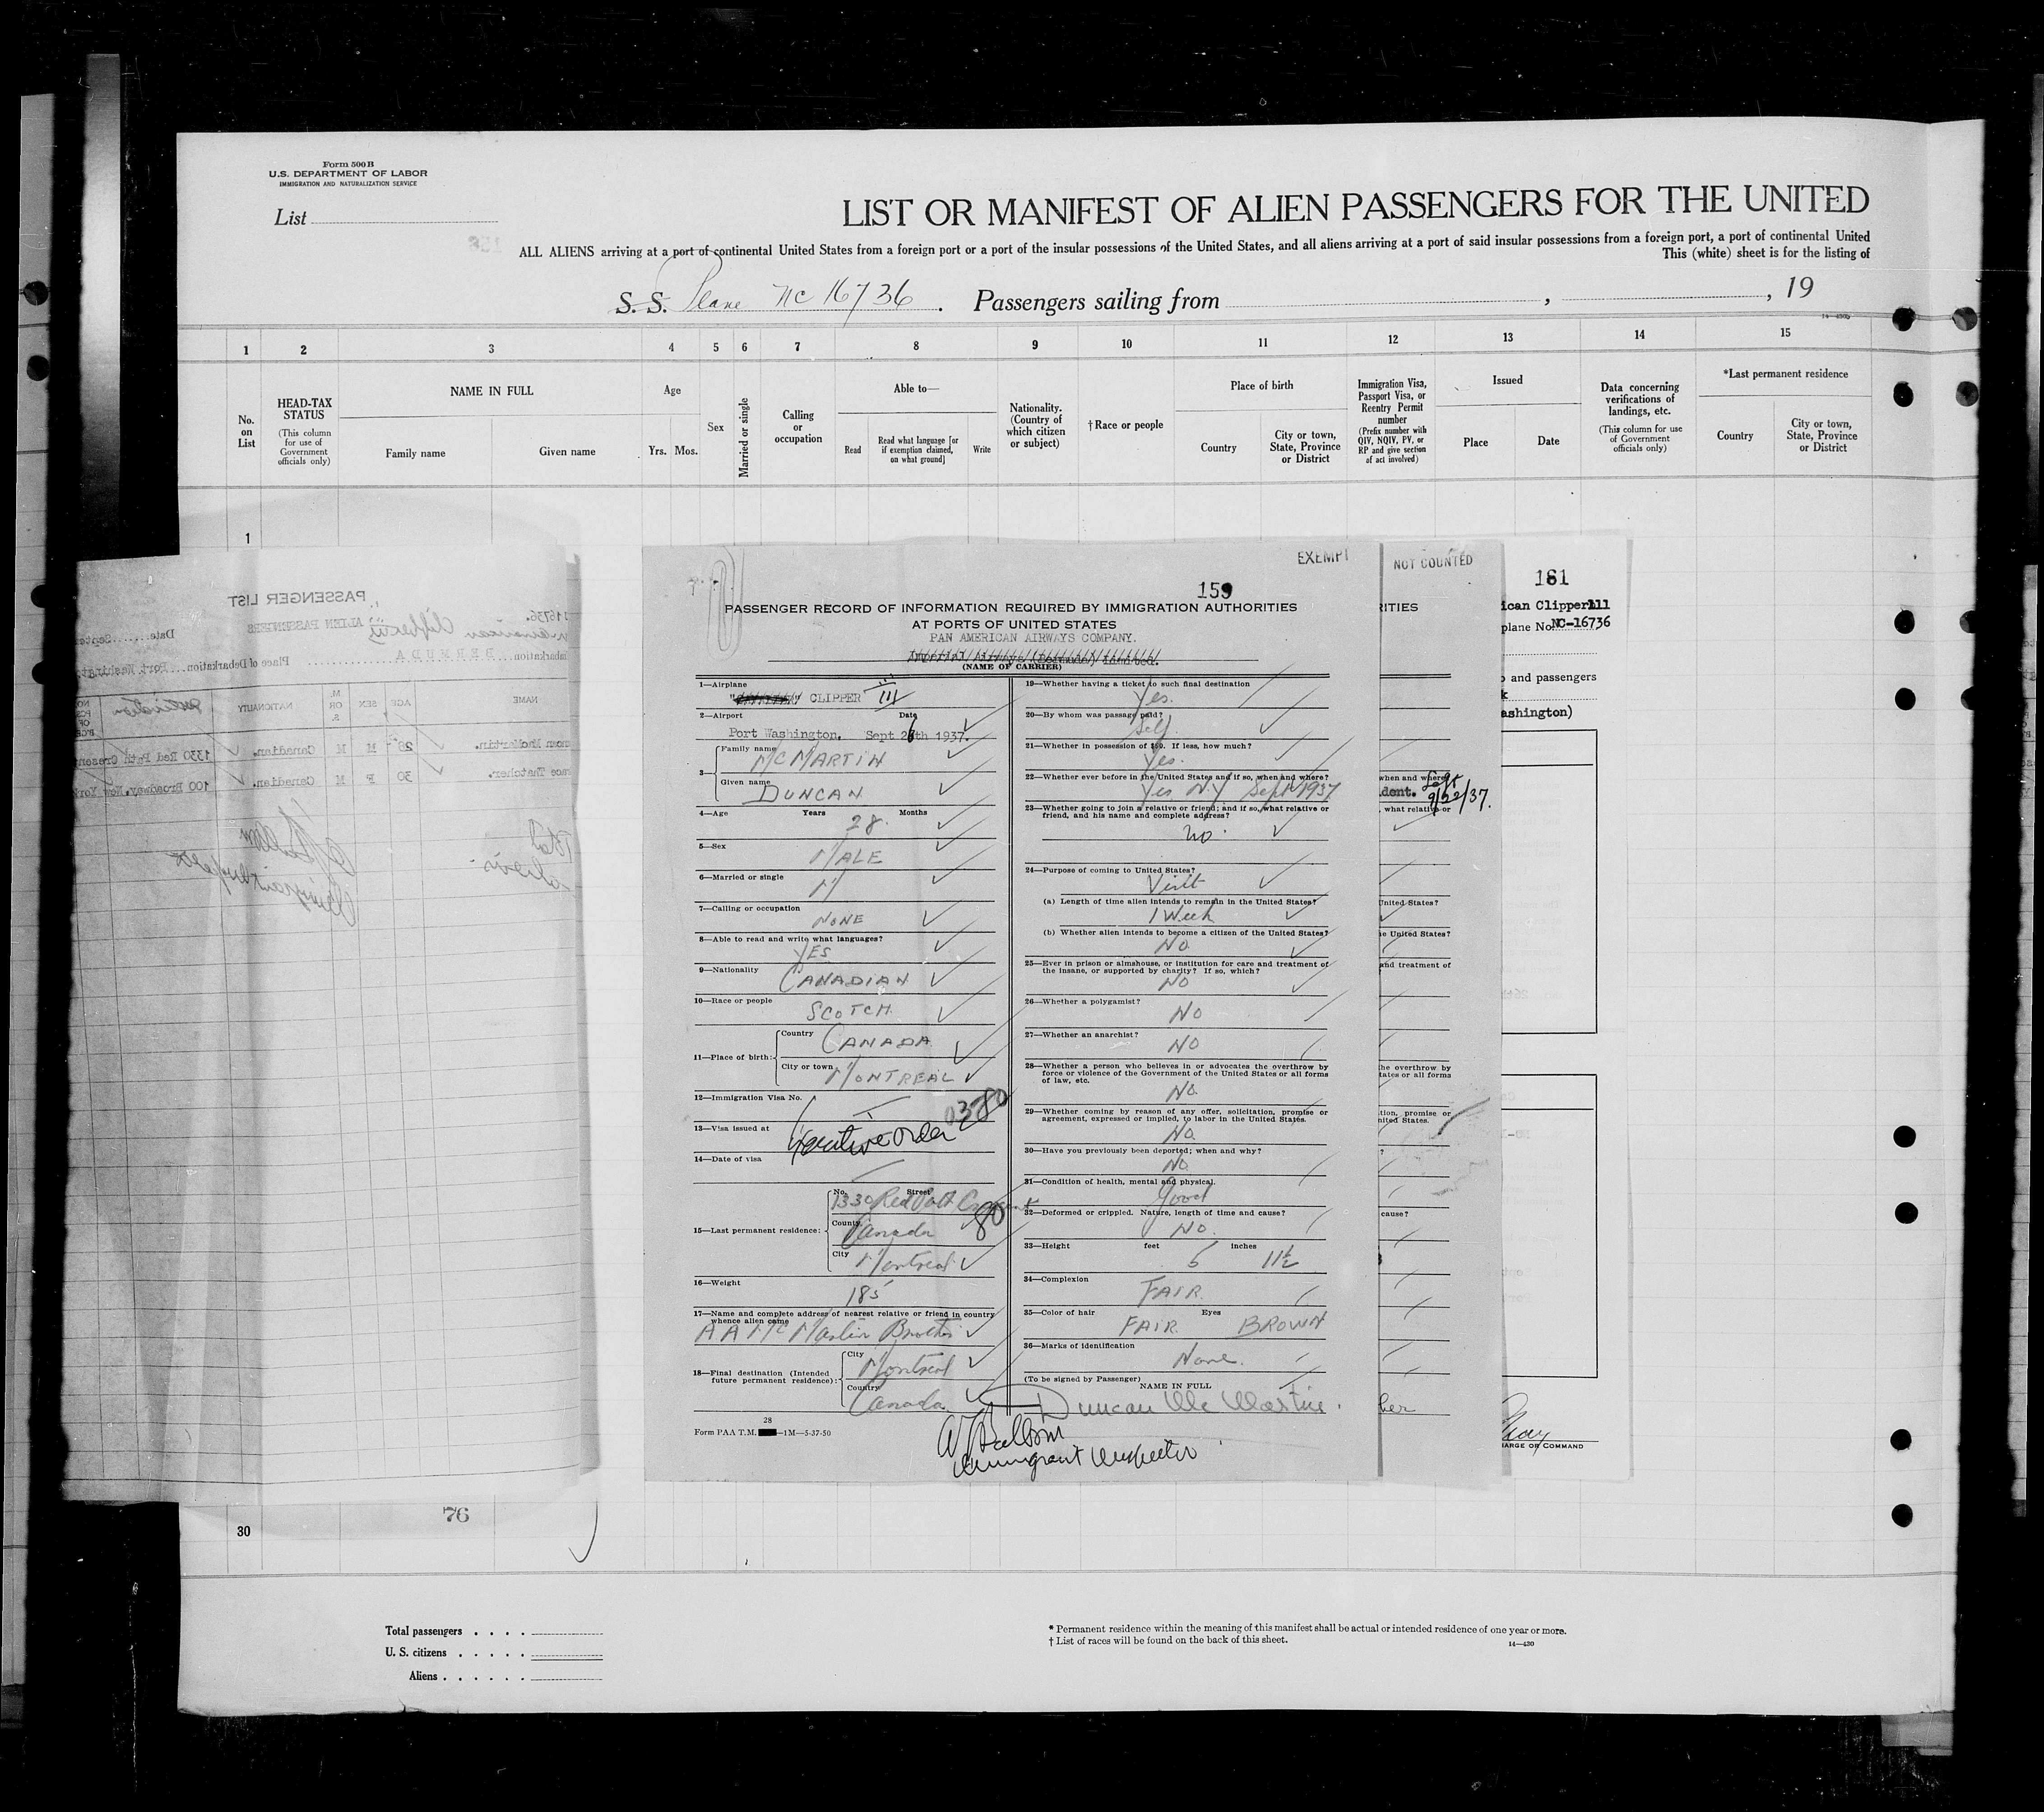 Form 500 B
U.S. DEPARTMENT OF LABOR
IMMIGRATION AND NATURALIZATION SERVICE
List
LIST OR MANIFEST OF ALIEN PASSENGERS FOR THE UNITED
ALL ALIENS arriving at a port of continental United States from a foreign port or a port of the insular possessions of the United States, and all aliens arriving at a port of said insular possessions from a foreign port, a port of continental United
This (white) sheet is for the listing of
S. S. Plane NC 16736. Passengers sailing from , , 19
1 2 3 4 5 6 7 8 9 10 11 12 13 14 15
No. on List
HEAD-TAX STATUS
(This column for use of Government officials only)
NAME IN FULL
Family name
Given name
Age
Yrs. Mos.
Sex
Married or single
Calling or occupation
Able to—
Read
Read what language [or if exemption claimed, on what ground]
Write
Nationality. (Country of which citizen or subject)
†Race or people
Place of birth
Country
City or town, State, Province or District
Immigration Visa, Passport Visa, or Reentry Permit number
(Prefix number with QIV, NQIV, PV, or RP and give section of act involved)
Issued
Place
Date
Data concerning verifications of landings, etc.
(This column for use of Government officials only)
*Last permanent residence
Country
City or town, State, Province or District
1
PASSENGER LIST
ALIEN PASSENGERS
16736.
American Clipper III
Date
Septem
Embarkation BERMUDA
Place of Debarkation Port Washington
NAME
AGE
SEX
M. OR S.
NATIONALITY
Destination
McMartin. 28 M M Canadian. 1330 Red Path Crescent
Thatcher. 30 F M Canadian. 100 Broadway, New York
Immigrant Inspector
EXEMPT
159
PASSENGER RECORD OF INFORMATION REQUIRED BY IMMIGRATION AUTHORITIES
AT PORTS OF UNITED STATES
PAN AMERICAN AIRWAYS COMPANY.
Imperial Airways (Bermuda) Limited.
(NAME OF CARRIER)
1—Airplane
CLIPPER III
2—Airport Date
Port Washington. Sept 26th 1937.
3— Family name
McMARTIN
Given name
DUNCAN
4—Age Years Months
28
5—Sex
MALE
6—Married or single
M
7—Calling or occupation
NONE
8—Able to read and write what languages?
YES
9—Nationality
CANADIAN
10—Race or people
SCOTCH
11—Place of birth: Country
CANADA
City or town
MONTREAL
12—Immigration Visa No.
0380
13—Visa issued at
Executive Order
14—Date of visa
15—Last permanent residence: No. Street
1330 Red Path Crescent
County
Canada
80
City
Montreal
16—Weight
185
17—Name and complete address of nearest relative or friend in country whence alien came
A A McMartin Brother
18—Final destination (Intended future permanent residence): City
Montreal
Country
Canada
28
Form PAA T.M. —1M—5-37-50
19—Whether having a ticket to such final destination
Yes.
20—By whom was passage paid?
Self
21—Whether in possession of $50. If less, how much?
Yes.
22—Whether ever before in the United States and if so, when and where?
Yes N.Y Sept 1937
23—Whether going to join a relative or friend; and if so, what relative or friend, and his name and complete address?
no.
24—Purpose of coming to United States?
Visit
(a) Length of time alien intends to remain in the United States?
1 Week
(b) Whether alien intends to become a citizen of the United States?
No
25—Ever in prison or almshouse, or institution for care and treatment of the insane, or supported by charity? If so, which?
NO
26—Whether a polygamist?
NO
27—Whether an anarchist?
NO
28—Whether a person who believes in or advocates the overthrow by force or violence of the Government of the United States or all forms of law, etc.
No.
29—Whether coming by reason of any offer, solicitation, promise or agreement, expressed or implied, to labor in the United States.
No.
30—Have you previously been deported; when and why?
No.
31—Condition of health, mental and physical.
Good
32—Deformed or crippled. Nature, length of time and cause?
NO.
33—Height feet inches
5 11½
34—Complexion
FAIR.
35—Color of hair Eyes
FAIR. BROWN
36—Marks of identification
None.
(To be signed by Passenger)
NAME IN FULL
Duncan McMartin.
Immigrant Inspector
NOT COUNTED
RITIES
when and where?
dent. Left 9/22/37.
, what relative or
United States?
e United States?
and treatment of
he overthrow by
tates or all forms
tion, promise or
nited States.
?
cause?
her
161
ican Clipper III
plane No. NC-16736
and passengers
k
ashington)
HARGE OR COMMAND
30
76
Total passengers
U. S. citizens
Aliens
* Permanent residence within the meaning of this manifest shall be actual or intended residence of one year or more.
† List of races will be found on the back of this sheet.
14—430